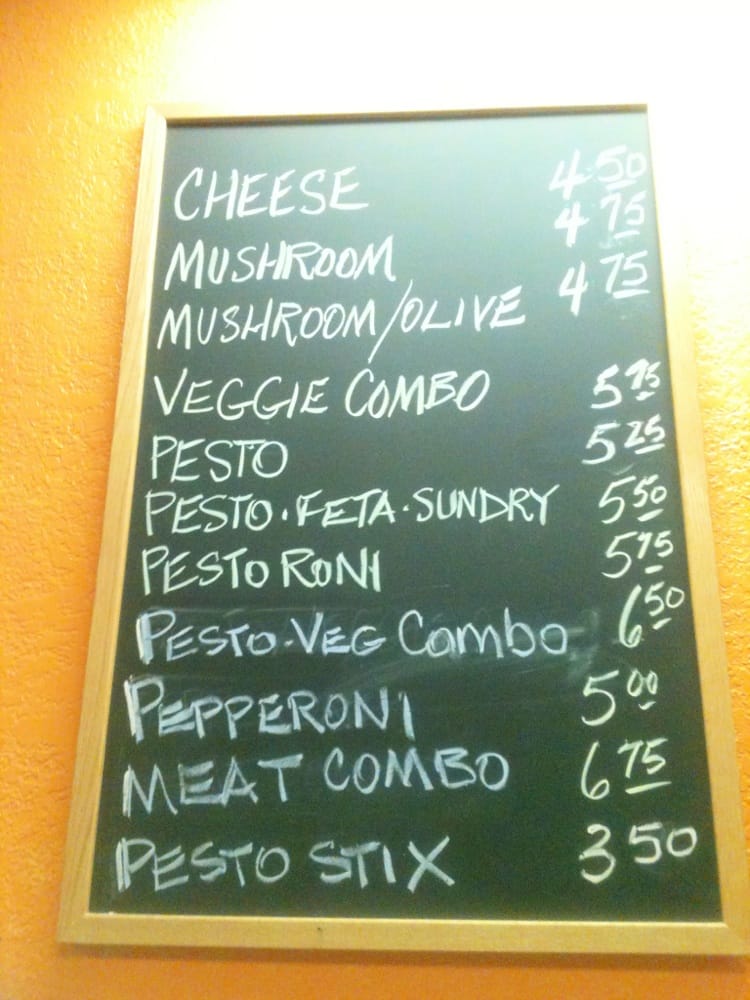 CHEESE 4.50
MUSHROOM 4 75
MUSHROOM/OLIVE 4 75
VEGGIE COMBO 5 75
PESTO 5 25
PESTO·FETA·SUNDRY 5 50
PESTO RONI 5 75
PESTO-VEG Combo 6 50
PEPPERONI 5 00
MEAT COMBO 6 75
PESTO STIX 3 50